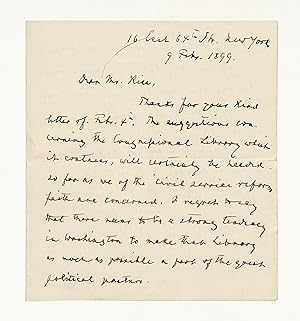 16 East 64th St. New York
9 Feb. 1899.
Dear Mr. Rice,
Thanks for your kind
letter of Feb. 4th. The suggestions con
cerning the Congressional Library which
it contains, will certainly be heeded
so far as we of the civil service reform
faith are concerned. I regret to say
that there seems to be a strong tendency
in Washington to make that Library
as much as possible a part of the great
political pasture.